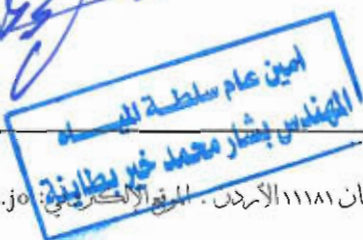 امين عام سلطة المياه
المهندس بشار محمد خير بطاينة
ان ١١١٨١ الأردن . الموقع الإلكتروني: jo.